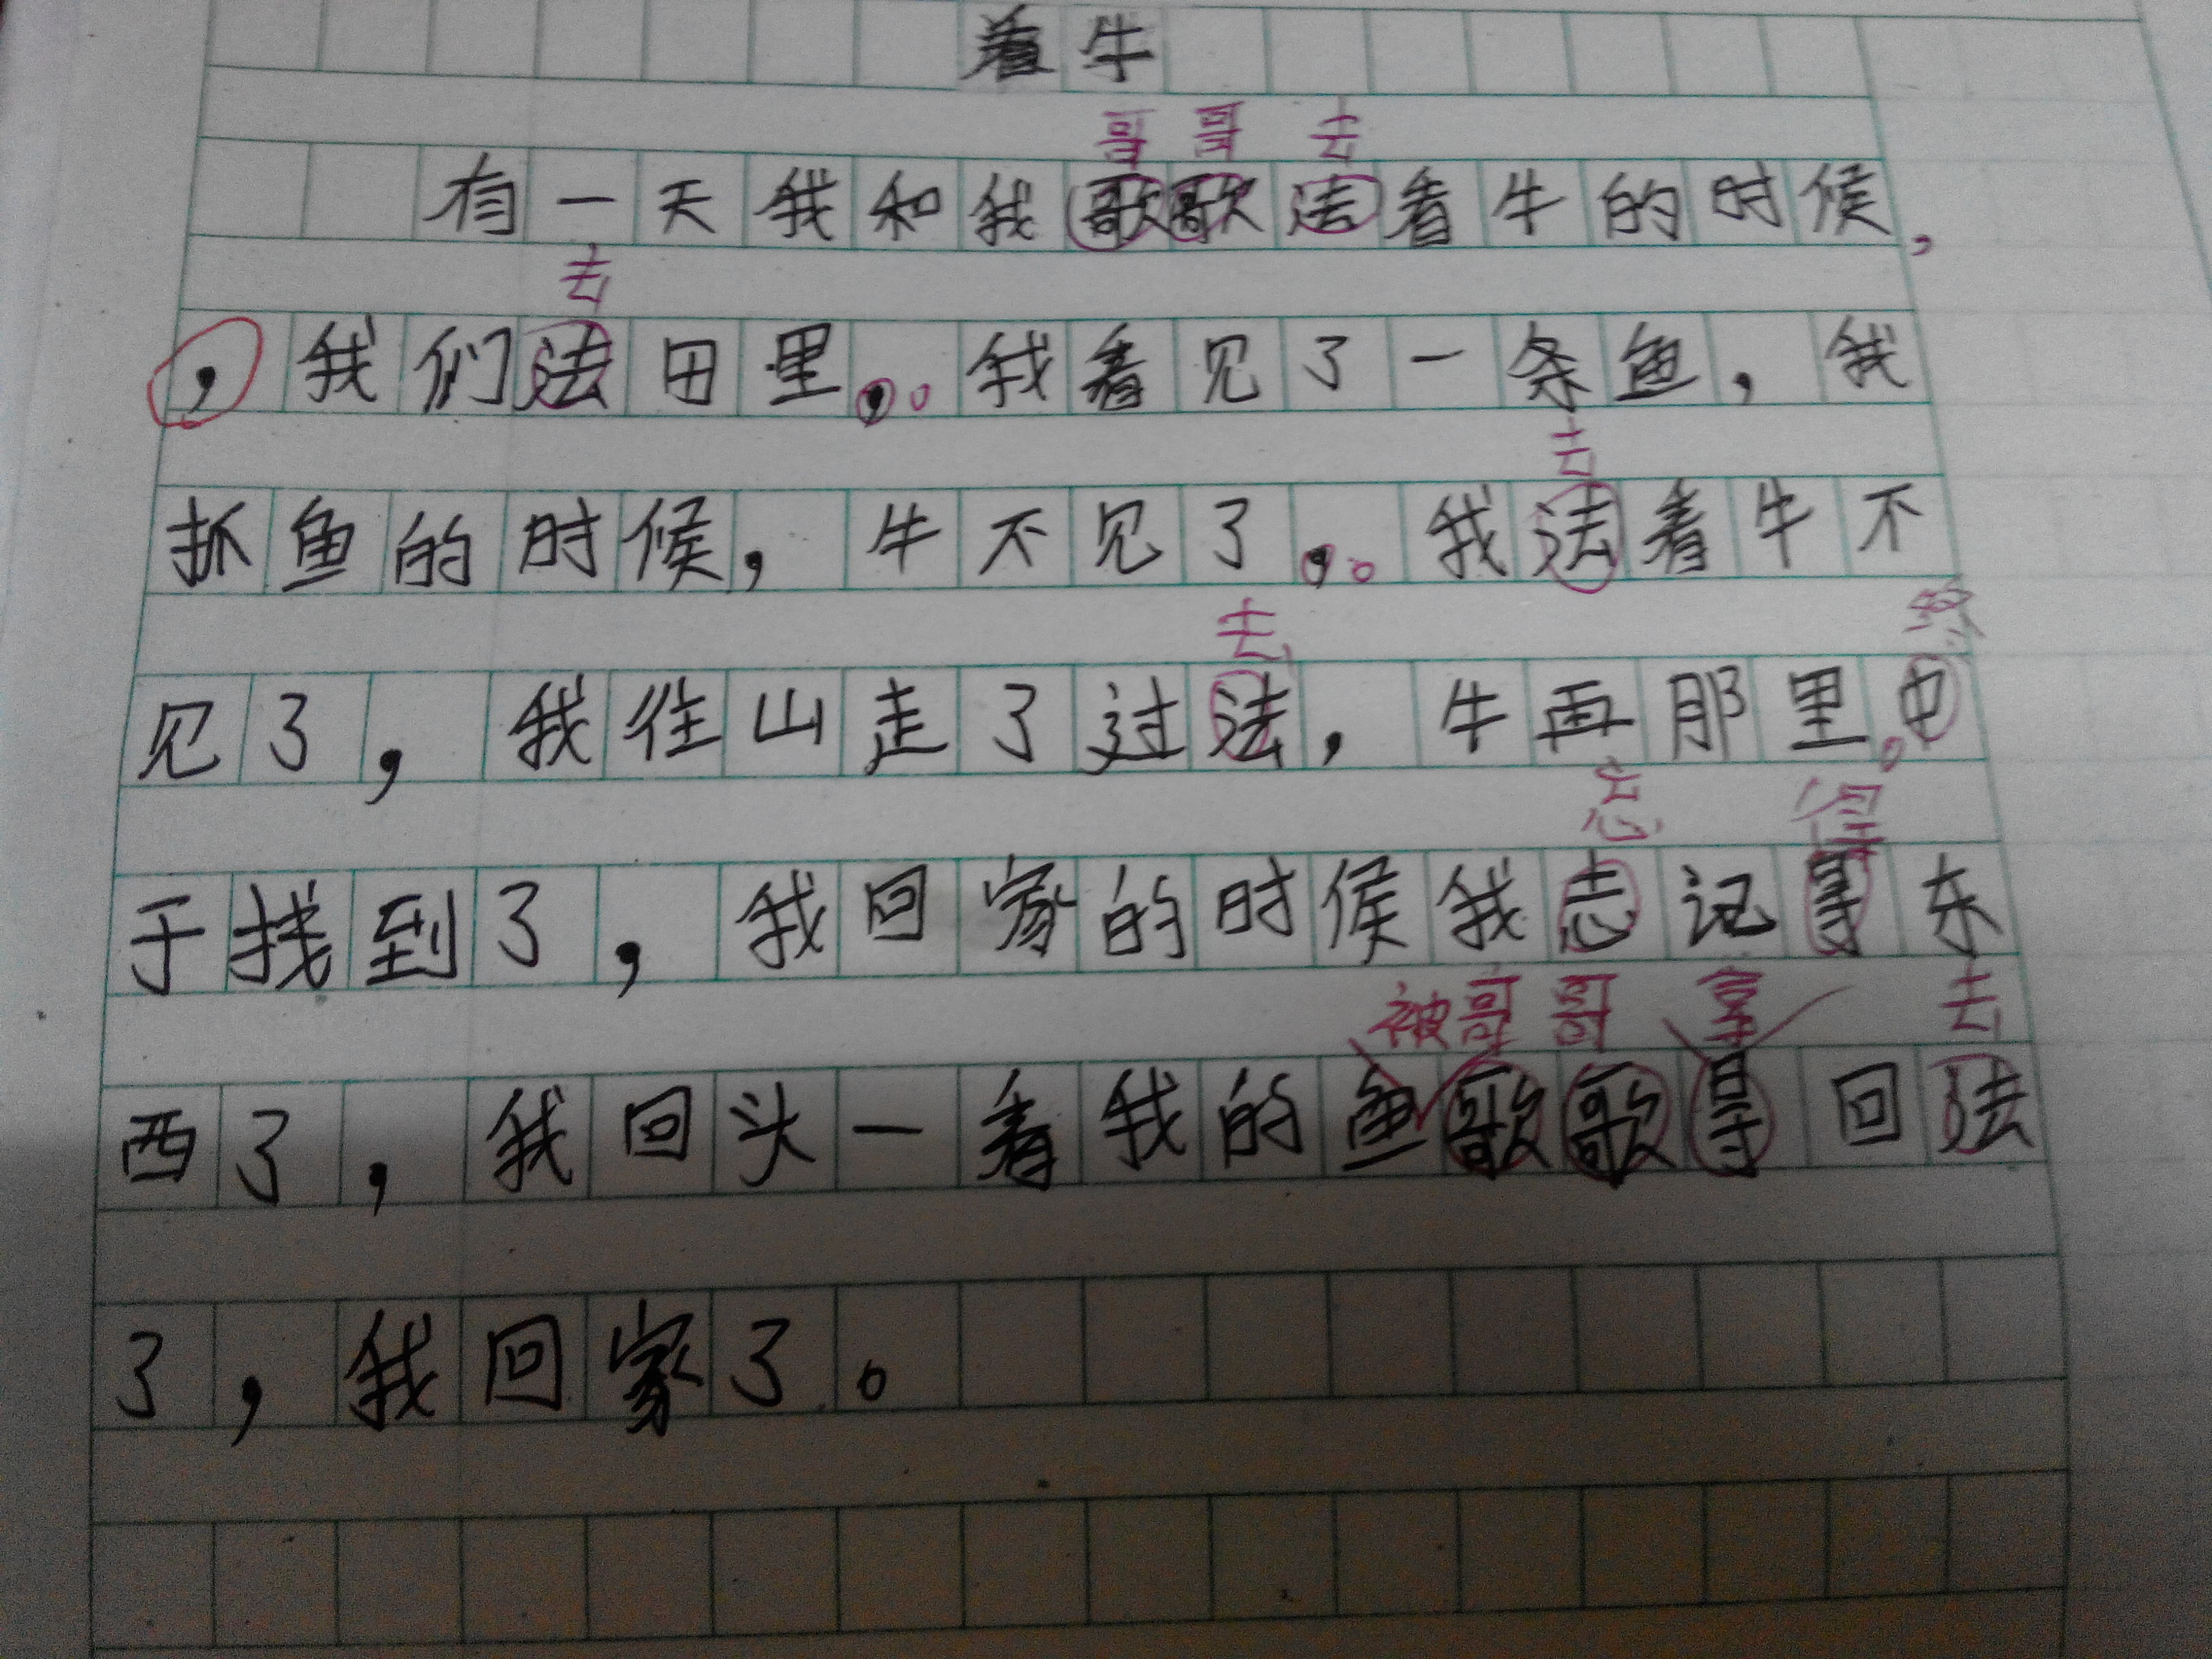 看牛
哥哥去
有一天我和我歌歌法看牛的时候，
去
，我们法田里，。我看见了一条鱼，我
去
抓鱼的时候，牛不见了，。我法看牛不
去 终
见了，我往山走了过法，牛再那里。中
忘 得
于找到了，我回家的时候我志记㝵东
被哥哥 拿 去
西了，我回头一看我的鱼歌歌㝵回法
了，我回家了。